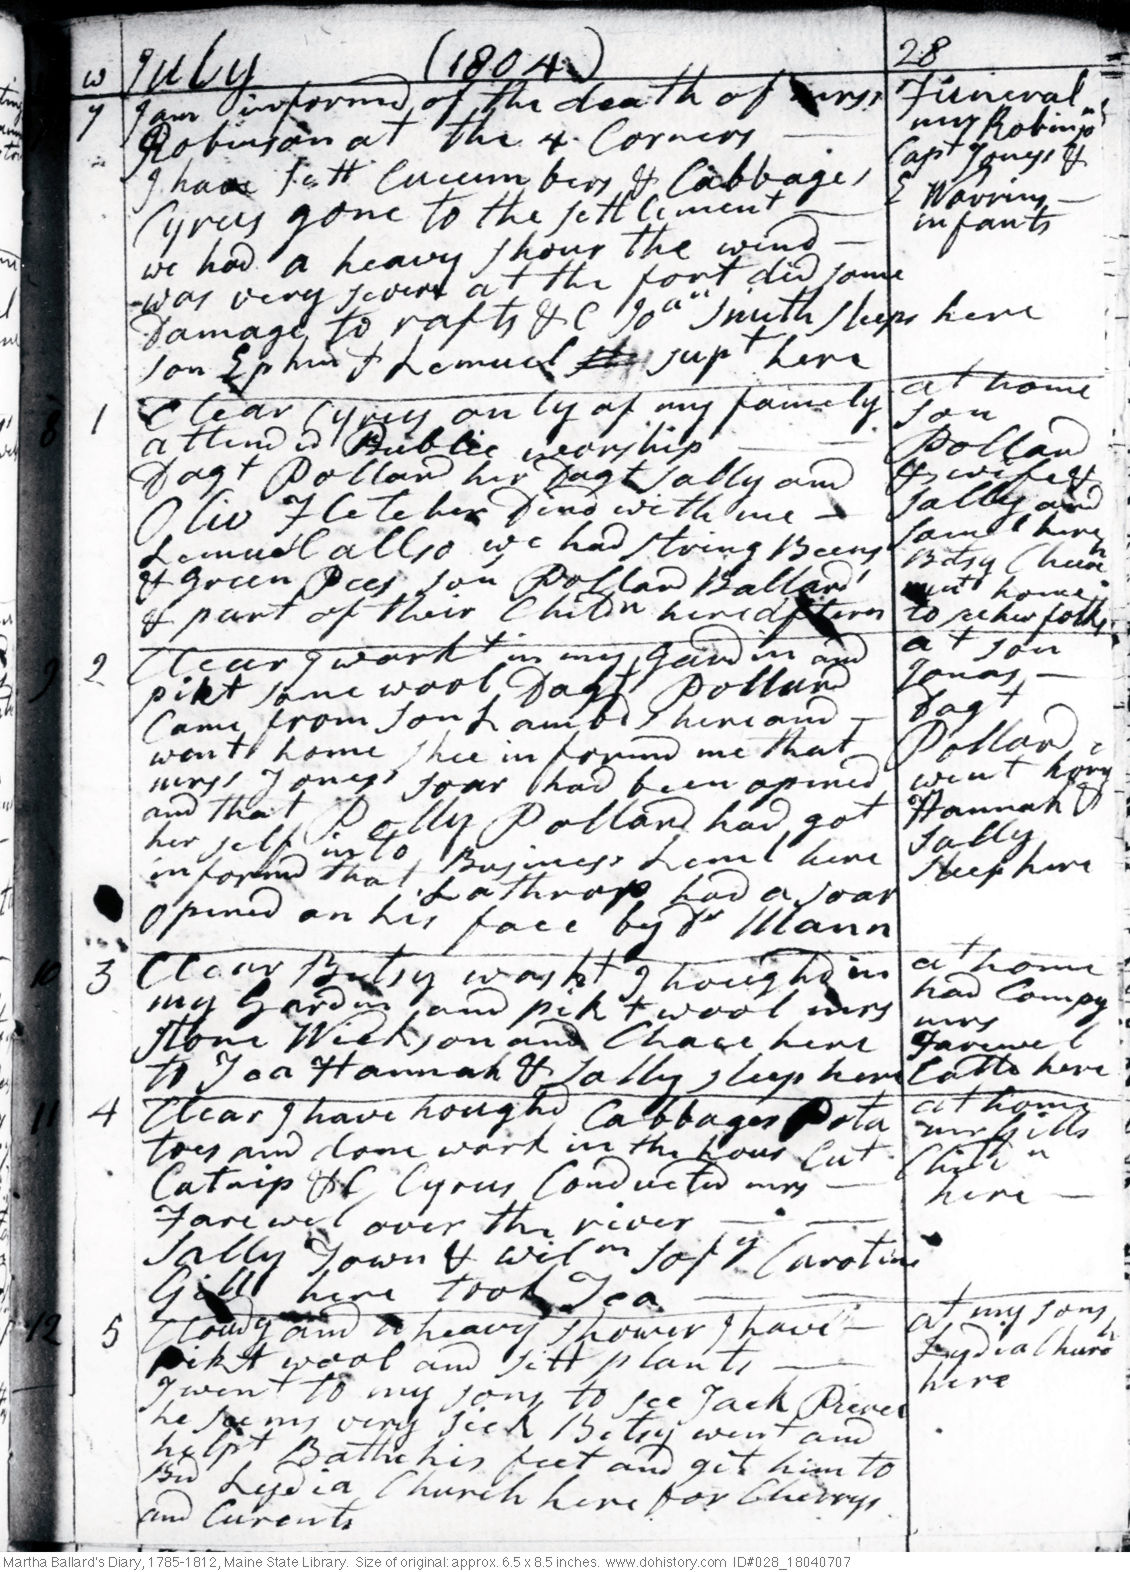 w July (1804) 28
7 I am informd of the death of mrss
Robinson at the 4 Corners
I have sett Cucumbers & Cabbages
Cyrus gone to the settlement
we had a heavy shour the wind
was very severe at the fort did some
Damage to rafts &C Jon smith sleeps here
son Ephm & Lemuel supt here
Funeral
mrs Robinsn
Capt Joness &
E Warrins
infants
8 1 Clear Cyrus only of my family
attend d Public worship
Dagt Pollard her Dagt Sally and
Oliv Fletcher Dind with me
Lemuel allso we had string Beens
& green Pees son Pollard Ballard
& part of their Childn here aftern
at home
son
Pollard
& wife &
Sally and
Saml here
Betsy Cheevr
went home
to see her folks
9 2 Clear I workt in my gardin and
pikt some wool Dagt Pollard
Came from son Lambds here and
went home shee informd me that
mrss Joness soar had been opened
and that Polly Pollard had got
her self into Business Leml here
informd that Lathrop had a soar
opined on his face by Dr Mann
at son
Jonas
Dagt
Pollard
went home
Hannah &
Sally
sleep here
10 3 Clear Betsy washt I houghd in
my Gardin and pikt wool mrs
Stone Wickson and Chace here
to Tea Hannah & Sally sleep here
at home
had Compy
mrs
Farewel
Catto here
11 4 Clear I have houghd Cabbages Pota
toes and done work in the hous Cut
Catnip &C Cyrus Conducted mrs
Farewel over the river
Sally Town & wilm Sophy Caroline
Gill here took Tea
at home
mr Gills
Childn
here
12 5 Cloudy and a heavy shower I have
pikt wool and sett plants
I went to my sons to see Jack Pierce
he seems very sick Betsy went and
helpt Bathe his feet and git him to
Bed Lydia Church here for Cherrys
and Curents
at my sons
Lydia Church
here
Martha Ballard's Diary, 1785-1812, Maine State Library. Size of original: approx. 6.5 x 8.5 inches. www.dohistory.com ID#028_18040707